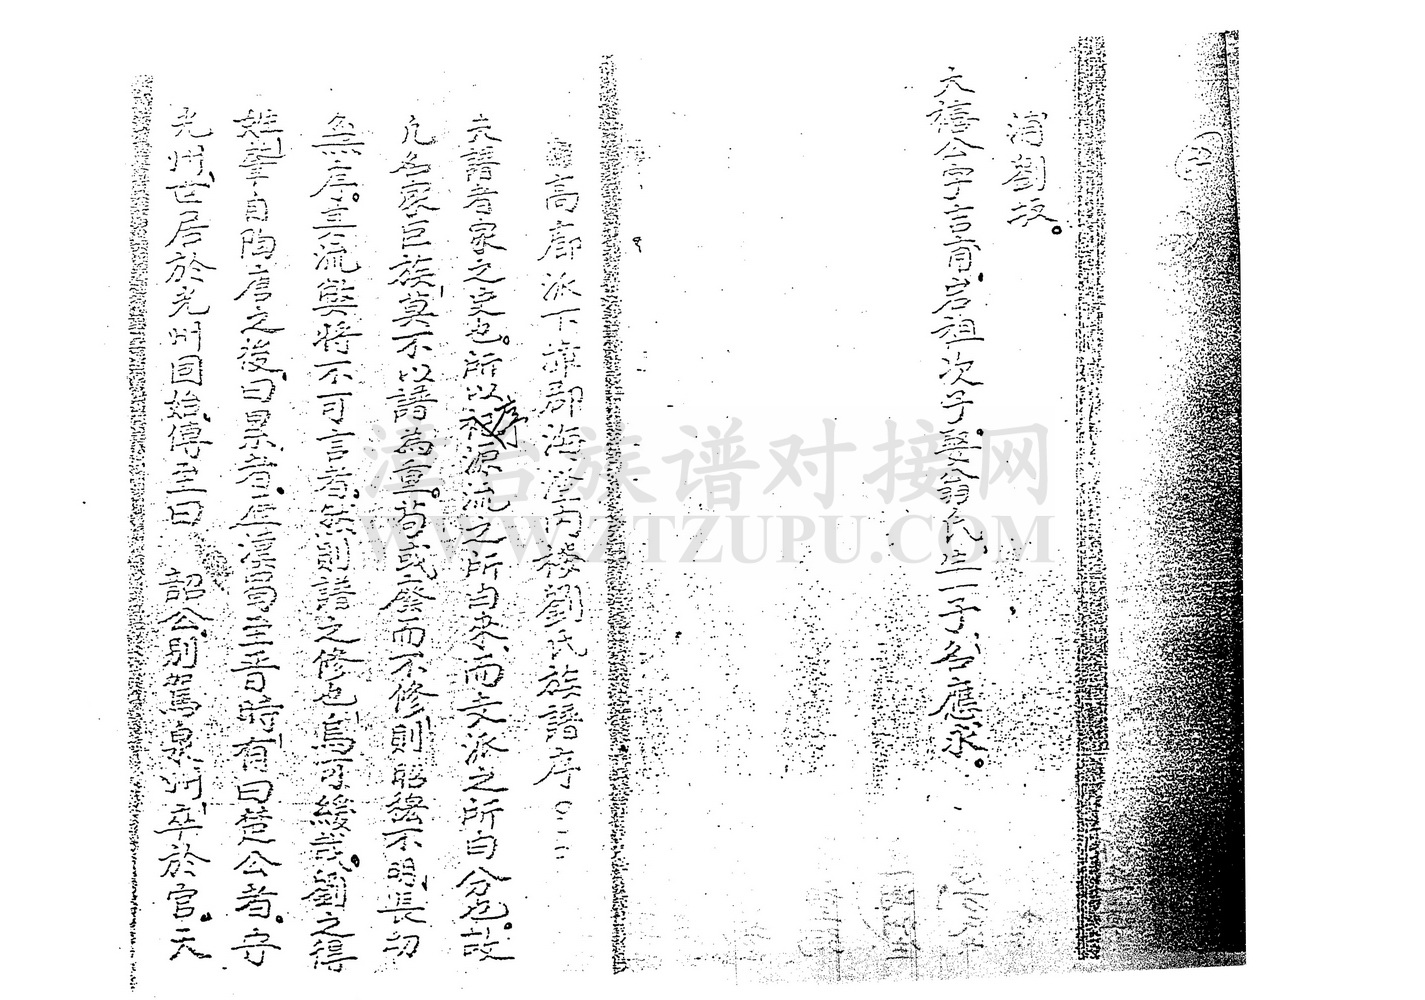 浦劉坂。
大禧公字言甫岩祖次子娶翁氏生一子名應永。
高廊派下漳郡海澄内樓劉氏族譜序
夫譜者家之史也。所以序源流之所自来而支派之所自分也。故
凡名家巨族莫不以譜為重。苟或廢而不修則昭穆不明長幼
無序。其流弊將不可言者。然則譜之修也烏可緩哉。劉之得
姓肇自陶唐之後曰累者。歷漢蜀至晋時有曰楚公者。守
光州世居於光州固始傳至曰 韶公别駕泉州卒於官。天
漳台族谱对接网
WWW.ZTZUPU.COM